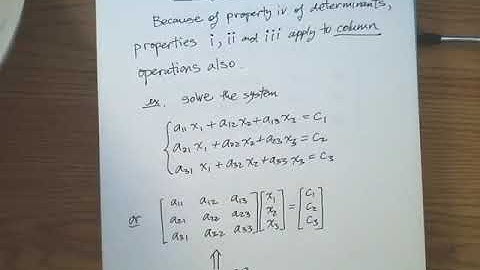 Because of property iv of determinants,
properties i, ii and iii apply to column
operations also.
ex. solve the system
a11 x1 + a12 x2 + a13 x3 = c1
a21 x1 + a22 x2 + a23 x3 = c2
a31 x1 + a32 x2 + a33 x3 = c3
or [a11 a12 a13; a21 a22 a23; a31 a32 a33] [x1; x2; x3] = [c1; c2; c3]